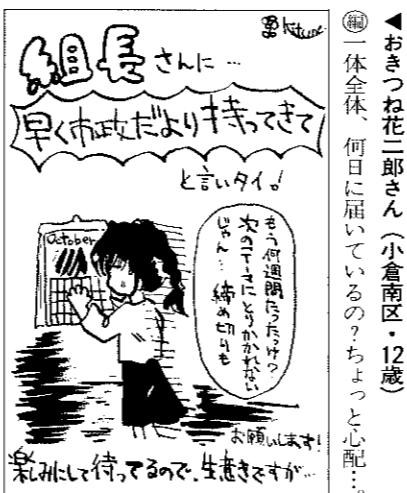 ◀おきつね花二郎さん（小倉南区・12歳）
㊢一体全体、何日に届いているの？ちょっと心配…。
組長さんに…
早く市政だより持ってきて
と言いタイ。
October
もう何週間たったっけ？
次のテーマにとりかかれない
じゃん…締め切りも
お願いします！
楽しみにして待ってるので、生意きですが…